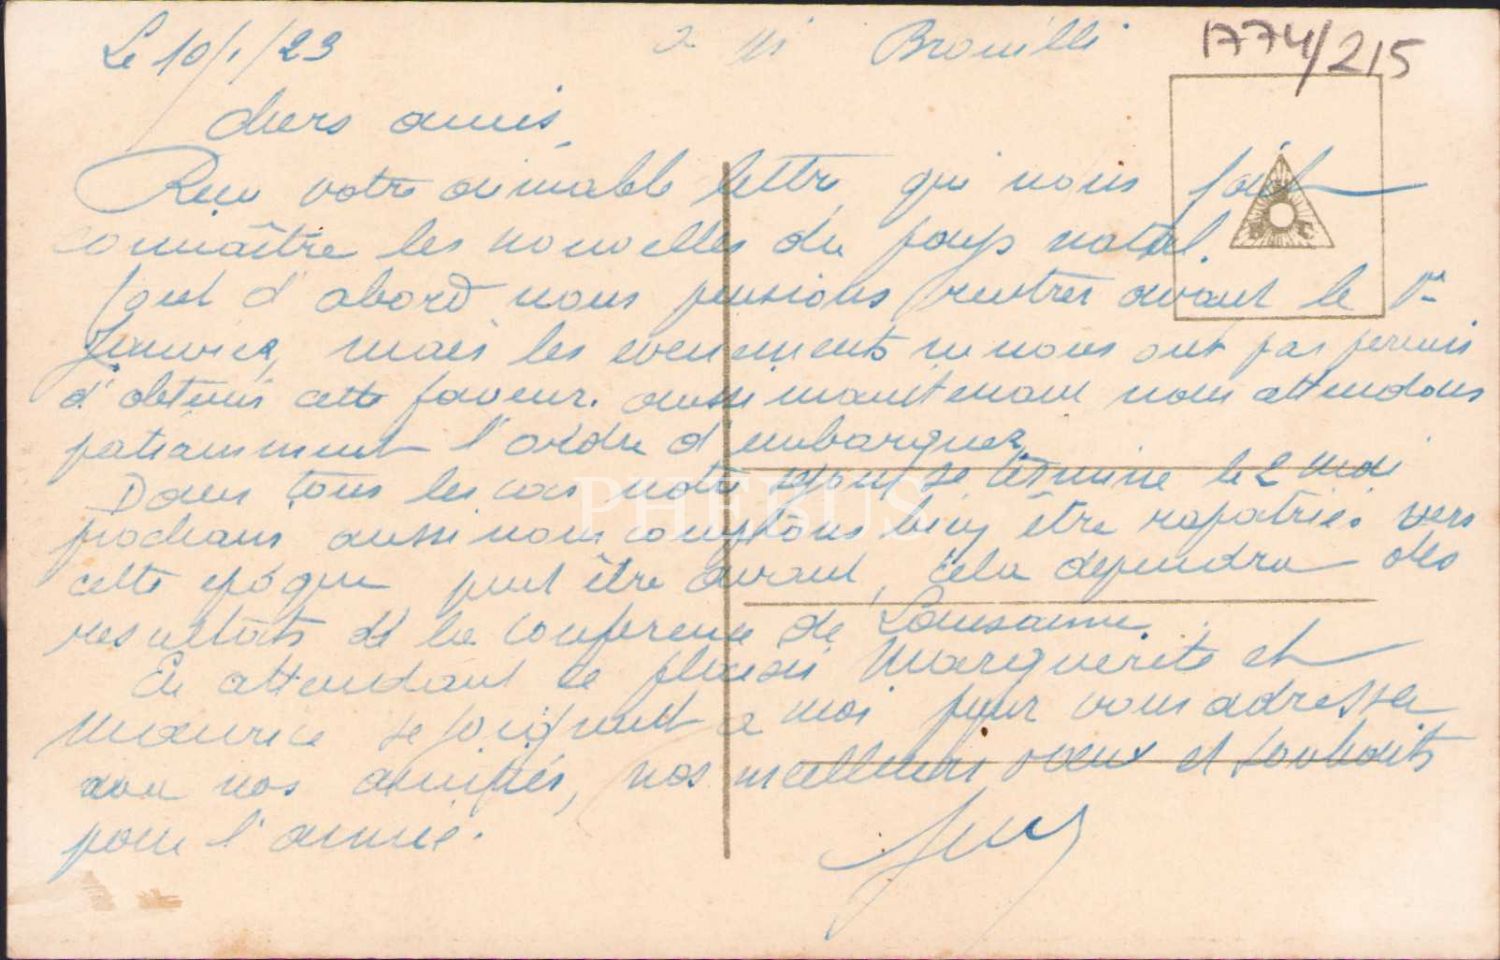 Le 10/1/23
Brouilli
1774/215
Chers amis,
Reçu votre aimable lettre, qui nous fait
connaître les nouvelles du pays natal.
Tout d'abord nous pensions rentrer avant le 1er
Janvier, mais les evenements ne nous ont pas permis
d'obtenir cette faveur. aussi maintenant nous attendons
patiamment l'ordre d'embarquer,
Dans tous les cas notre sejour se termine le 2 Mai
prochain aussi nous comptons bien être rapatriés vers
cette epoque peut être avant, cela dependra des
resultats de la conference de Lausanne.
En attendant ce plaisir Marguerite et
Maurice se joignent a moi pour vous adresser
avec nos amitiés, nos meilleurs vœux et souhaits
pour l'année.
PHEBUS